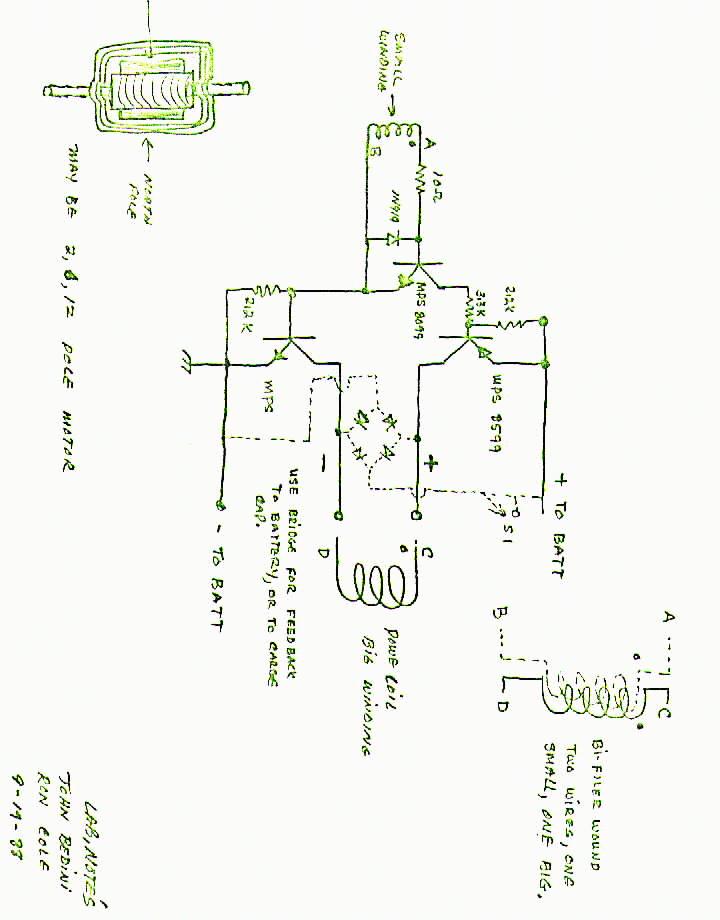 SMALL
WINDING →
A
B
10Ω
1N914
MPS 8099
3.3K
2.2K
2.2K
MPS
MPS 8599
+ TO BATT
S1
+
-
C
D
- TO BATT
USE BRIDGE FOR FEEDBACK
TO BATTERY, OR TO CARGE
CAP.
POWE COIL
BIG WINDING
A
B
C
D
BI-FILER WOUND
TWO WIRES, ONE
SMALL, ONE BIG,
← NORTH
POLE
MAY BE 2, 6, 12 POLE MOTOR
LAB, NOTES
JOHN BEDINI
RON COLE